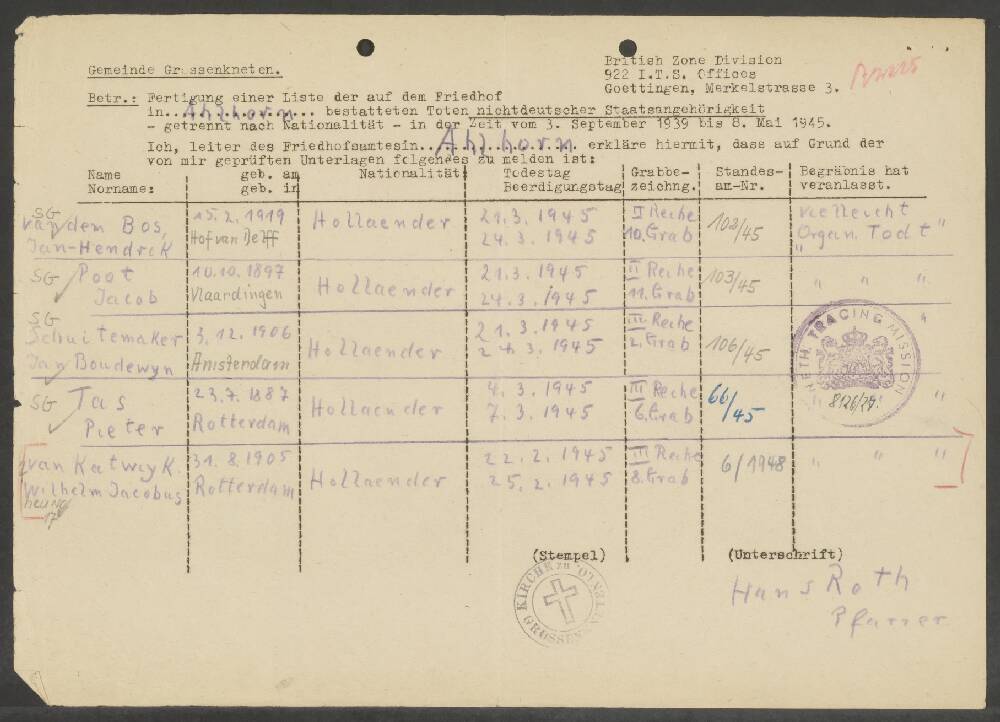 Gemeinde Grossenkneten.
British Zone Division
922 I.T.S. Offices
Goettingen, Merkelstrasse 3.
Betr.: Fertigung einer Liste der auf dem Friedhof
in...Ahlhorn... bestatteten Toten nichtdeutscher Staatsangehörigkeit
- getrennt nach Nationalität - in der Zeit vom 3. September 1939 bis 8. Mai 1945.
Ich, leiter des Friedhofsamtesin...Ahlhorn... erkläre hiermit, dass auf Grund der
von mir geprüften Unterlagen folgendes zu melden ist:
Name geb. am Nationalität: Todestag Grabbe- Standes- Begräbnis hat
Norname: geb. in Beerdigungstag zeichng. am-Nr. veranlasst.
SG van den Bos, 15.2.1919 Hollaender 21.3.1945 II Reihe 102/45 vielleicht
Jan-Hendrik Hof van Delft 24.3.1945 10. Grab "Organ. Todt"
SG Poot 10.10.1897 Hollaender 21.3.1945 II Reihe 103/45 " " "
Jacob Vlaardingen 24.3.1945 11. Grab
SG Schuitemaker 3.12.1906 Hollaender 21.3.1945 III Reihe 106/45 "
Jan Boudewyn Amsterdam 24.3.1945 2. Grab
SG Tas 23.7.1887 Hollaender 4.3.1945 III Reihe 66/45 " "
Pieter Rotterdam 7.3.1945 6. Grab
van Katwyk. 31.8.1905 Hollaender 22.2.1945 III Reihe 6/1948 " " "
Wilhelm Jacobus Rotterdam 25.2.1945 8. Grab
17
NETH. TRACING MISSION
8126/29.
(Stempel) (Unterschrift)
KIRCHE ZU
GROSSEN
Hans Roth
Pfarrer